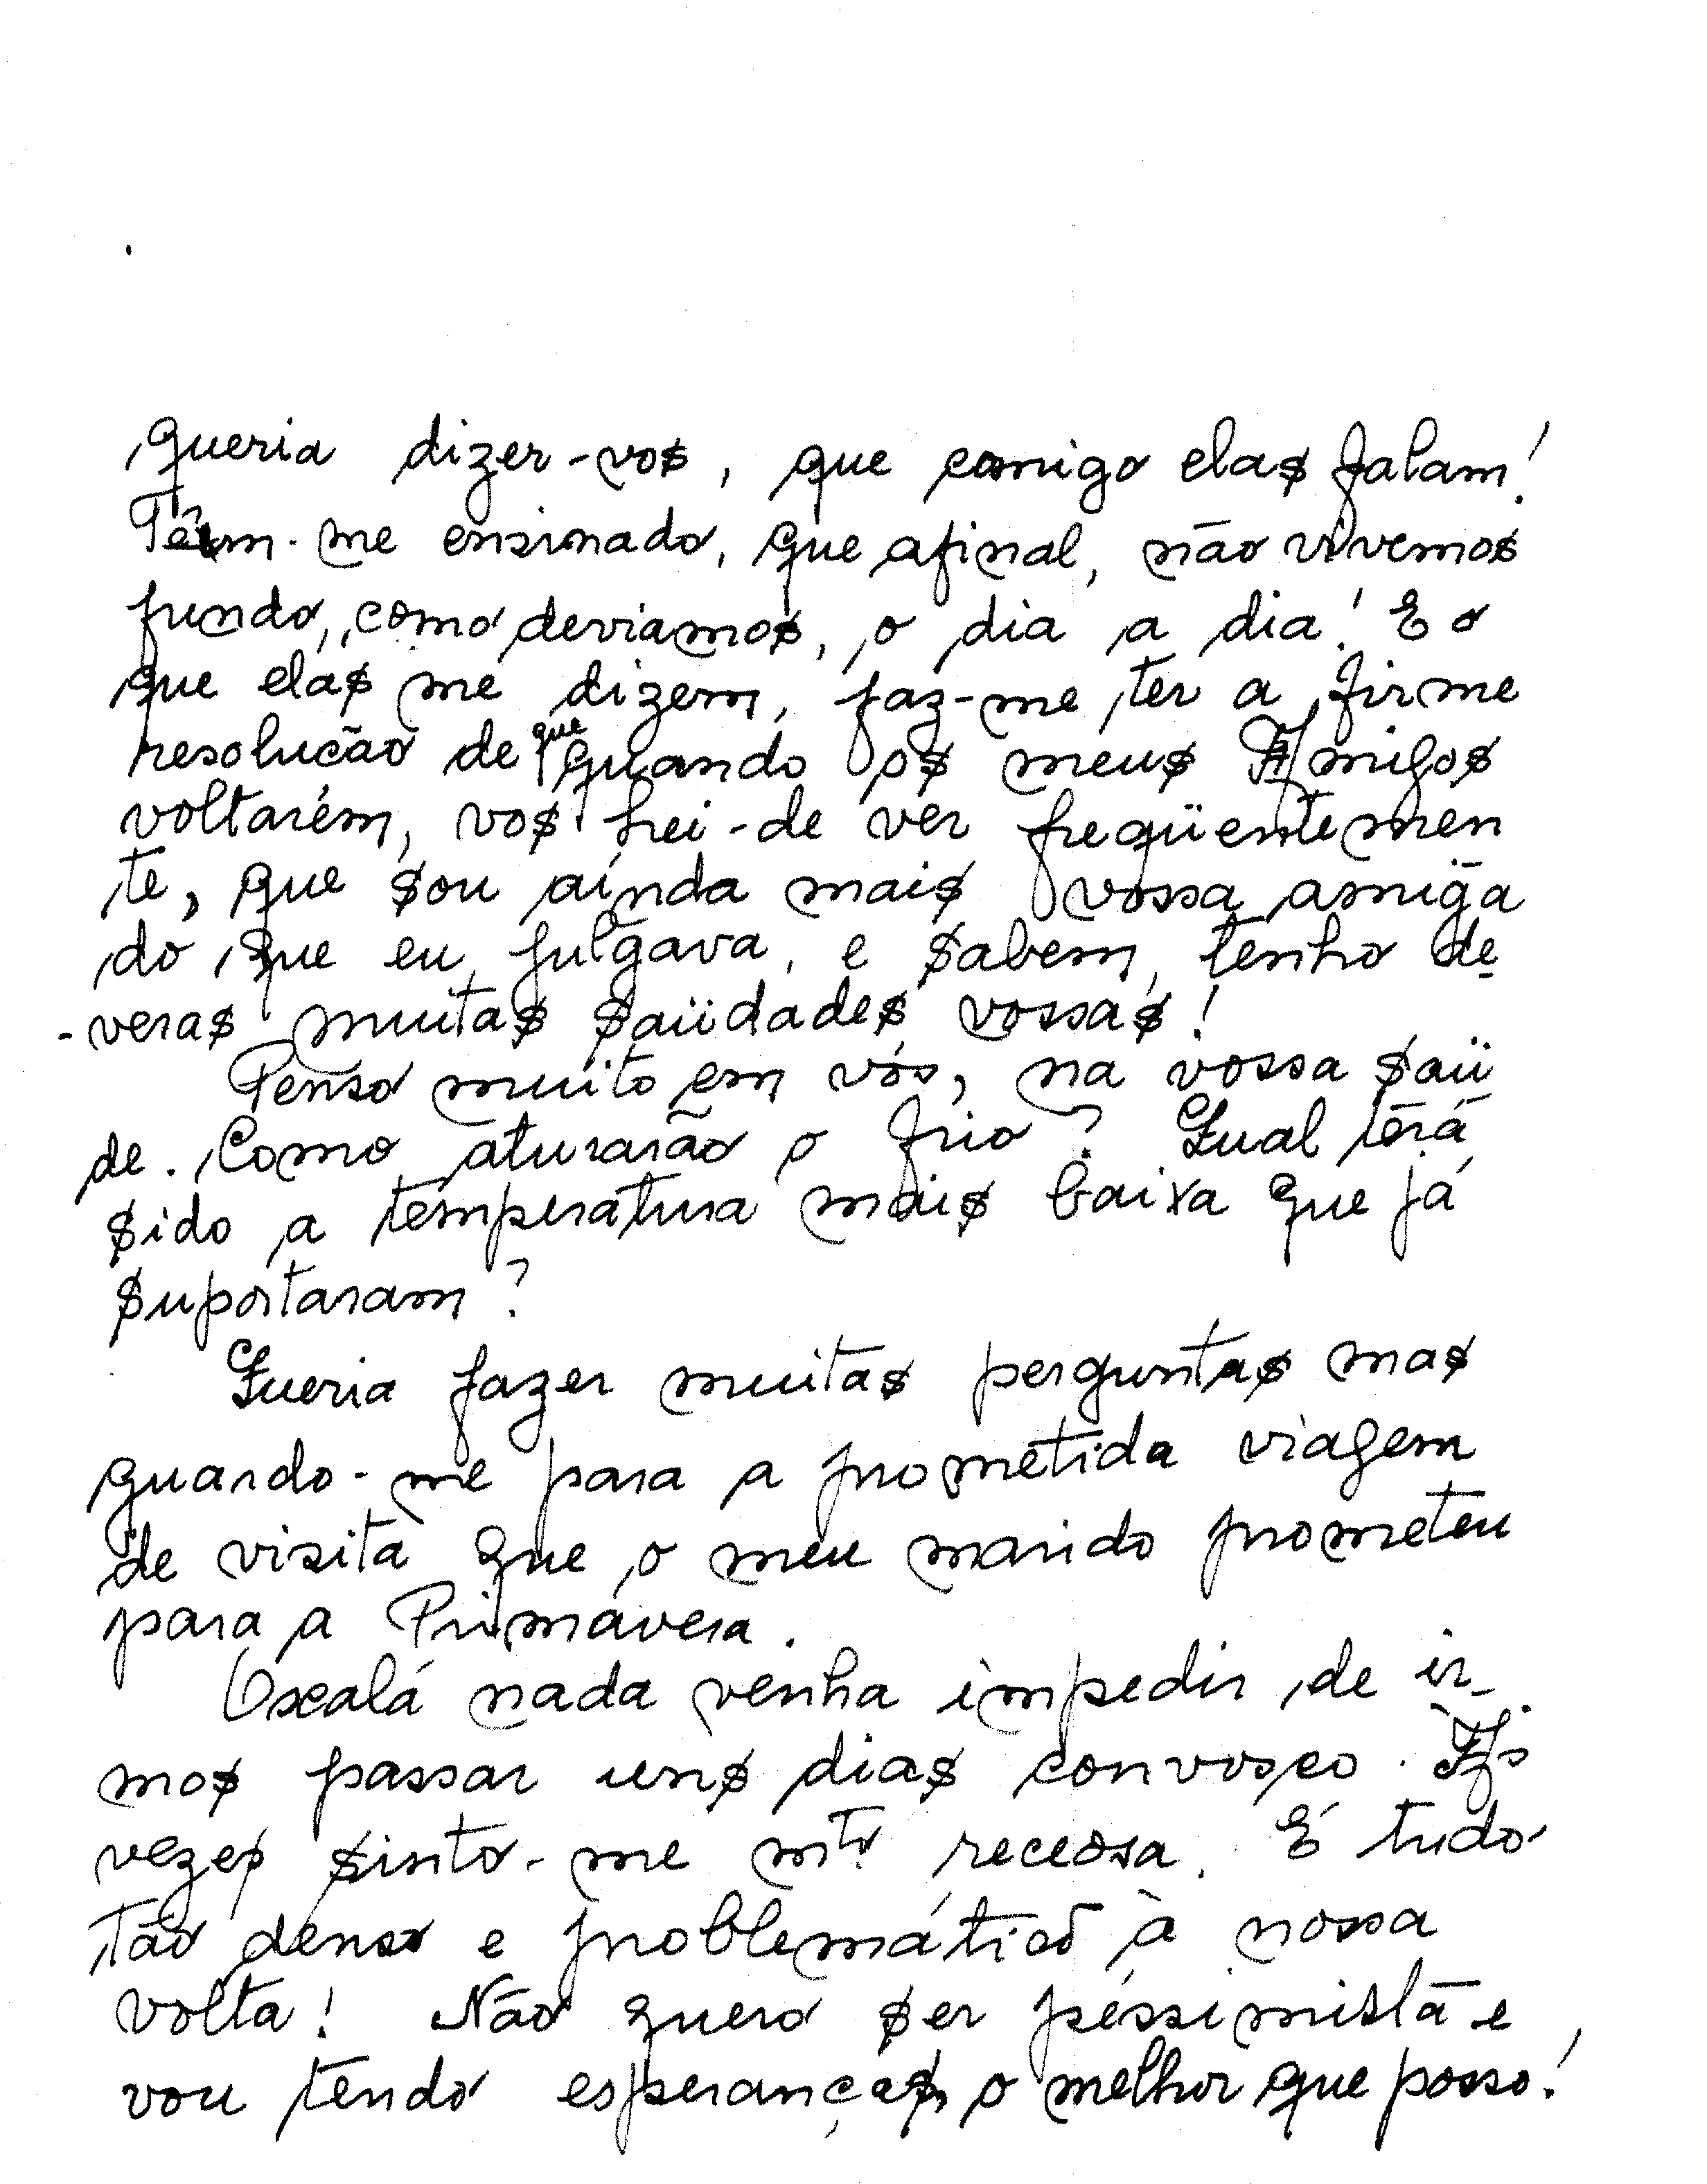 queria dizer-vos, que comigo elas falam!
Têm-me ensinado, que afinal, não vivemos
fundo, como deviamos, o dia a dia! E o
que elas me dizem, faz-me ter a firme
resolução de que quando os meus Amigos
voltarem, vos hei-de ver freqüentemen
te, que sou ainda mais vossa amiga
do que eu julgava, e sabem, tenho de
-veras muitas saüdades vossas!
Penso muito em vós, na vossa saü
de. Como aturarão o frio? Qual terá
sido a temperatura mais baixa que já
suportaram?
Queria fazer muitas perguntas mas
guardo-me para a prometida viagem
de visita que o meu marido prometeu
para a Primavera.
Oxalá nada venha impedir, de ir-
mos passar uns dias convosco. Às
vezes sinto-me mtº receosa. É tudo
tão denso e problemático à nossa
volta! Não quero ser pessimista e
vou tendo esperanças, o melhor que posso!